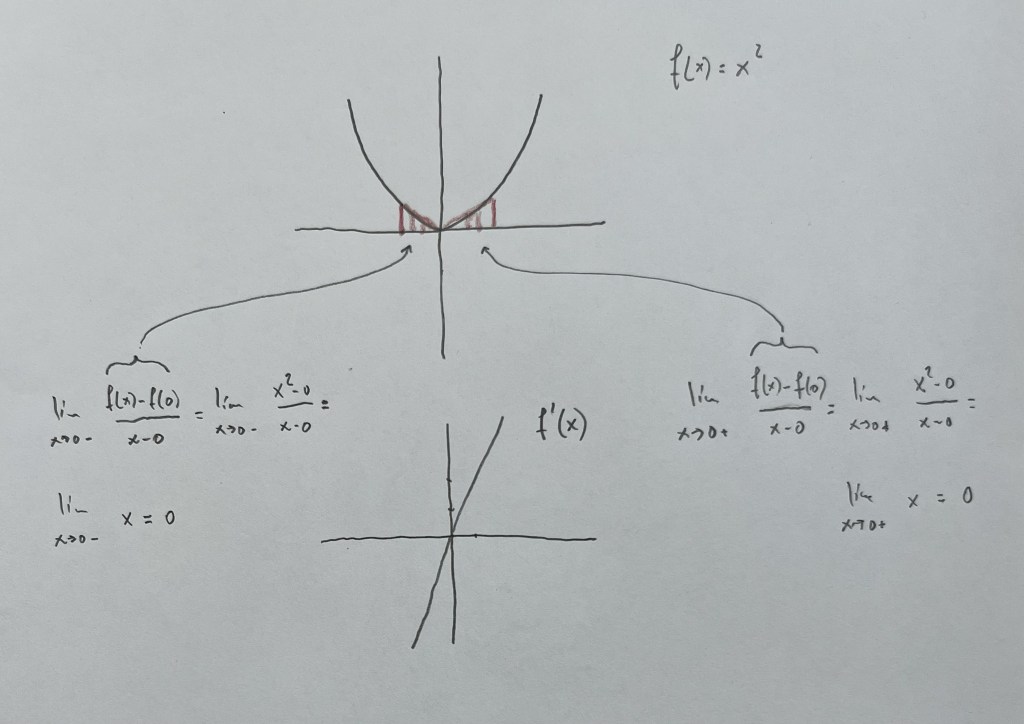 f(x) = x²
lim x→0- f(x)-f(0)/x-0 = lim x→0- x²-0/x-0 =
lim x→0- x = 0
f'(x)
lim x→0+ f(x)-f(0)/x-0 = lim x→0+ x²-0/x-0 =
lim x→0+ x = 0